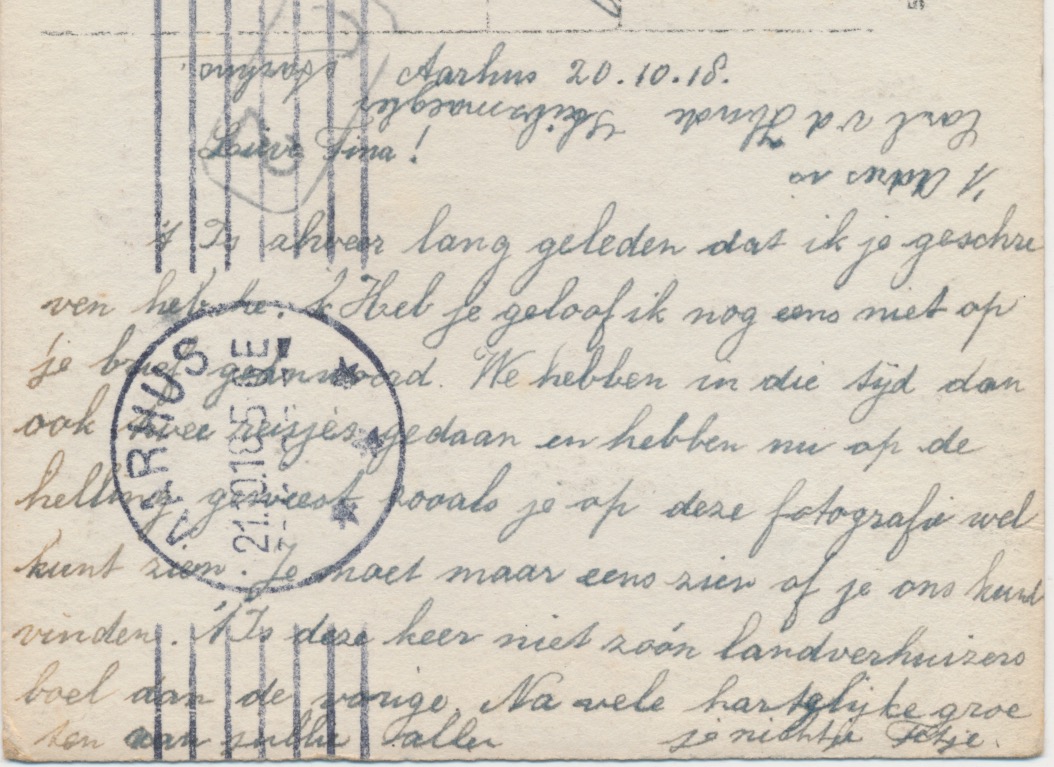 Aarhus 20.10.18.
Lieve Tina!
't Is alweer lang geleden dat ik je geschre
ven heb he. 'k Heb je geloof ik nog eens niet op
je brief geantwoord. We hebben in die tijd dan
ook twee reisjes gedaan en hebben nu op de
helling geweest zooals je op deze fotografie wel
kunt zien. Je moet maar eens zien of je ons kunt
vinden. 't Is deze keer niet zoó'n landverhuizers
boel dan de vorige. Na vele hartelijke groe
ten aan jullie allen
je nichtje
't Adres is
Carl v d
AARHUS
21.10.18 5-6E